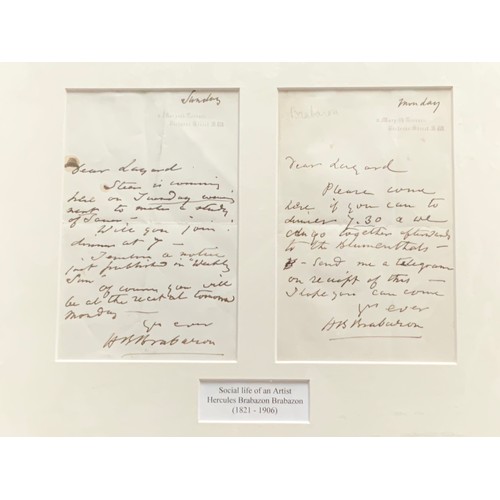 Sunday
Dear Lagard
Steer is coming
here on Tuesday
next to make a study
of
Will you join
dinner at 7 —
I enclose a notice
just published in "Weekly
Sun"
Of course you will
be at the recital tomorrow
Monday —
Yrs ever
HBBrabazon
Brabazon
Monday
Dear Lagard
Please come
here if you can to
dinner 7.30 & we
can go together afterwards
to the Blumenthals —
Send me a telegram
on receipt of this —
I hope you can come
Yrs ever
HBBrabazon
Social life of an Artist
Hercules Brabazon Brabazon
(1821 - 1906)